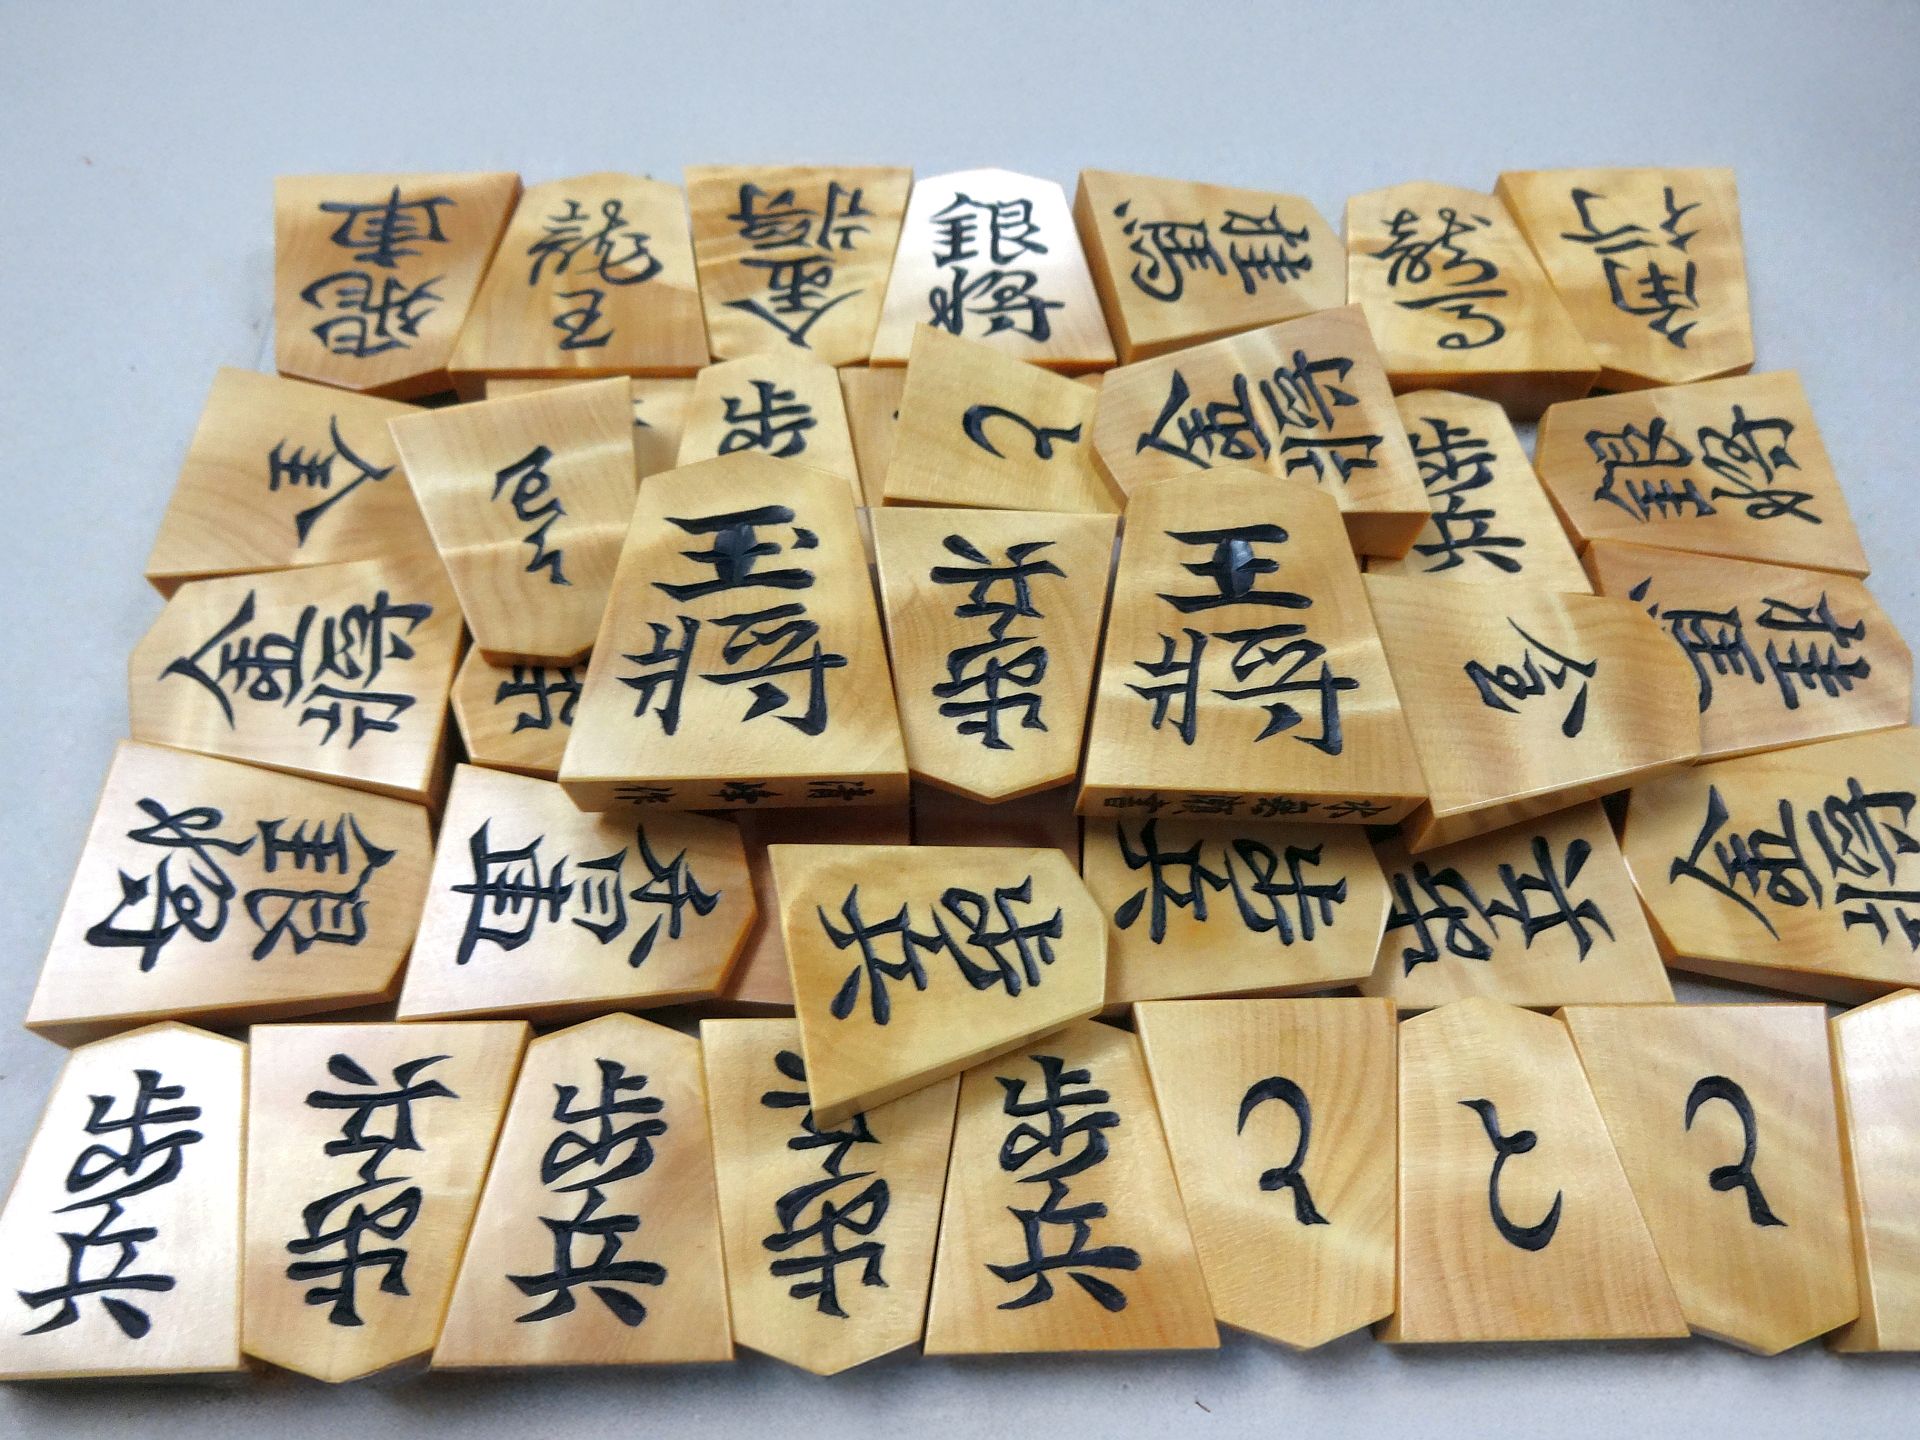 飛車
龍王
金将
銀将
桂馬
龍馬
角行
全
歩
と
金将
歩兵
銀将
金将
玉将
歩兵
王将
桂馬
銀将
香車
歩兵
歩兵
歩兵
金将
清峰作
水無瀬書
歩兵
歩兵
歩兵
歩兵
歩兵
と
と
と